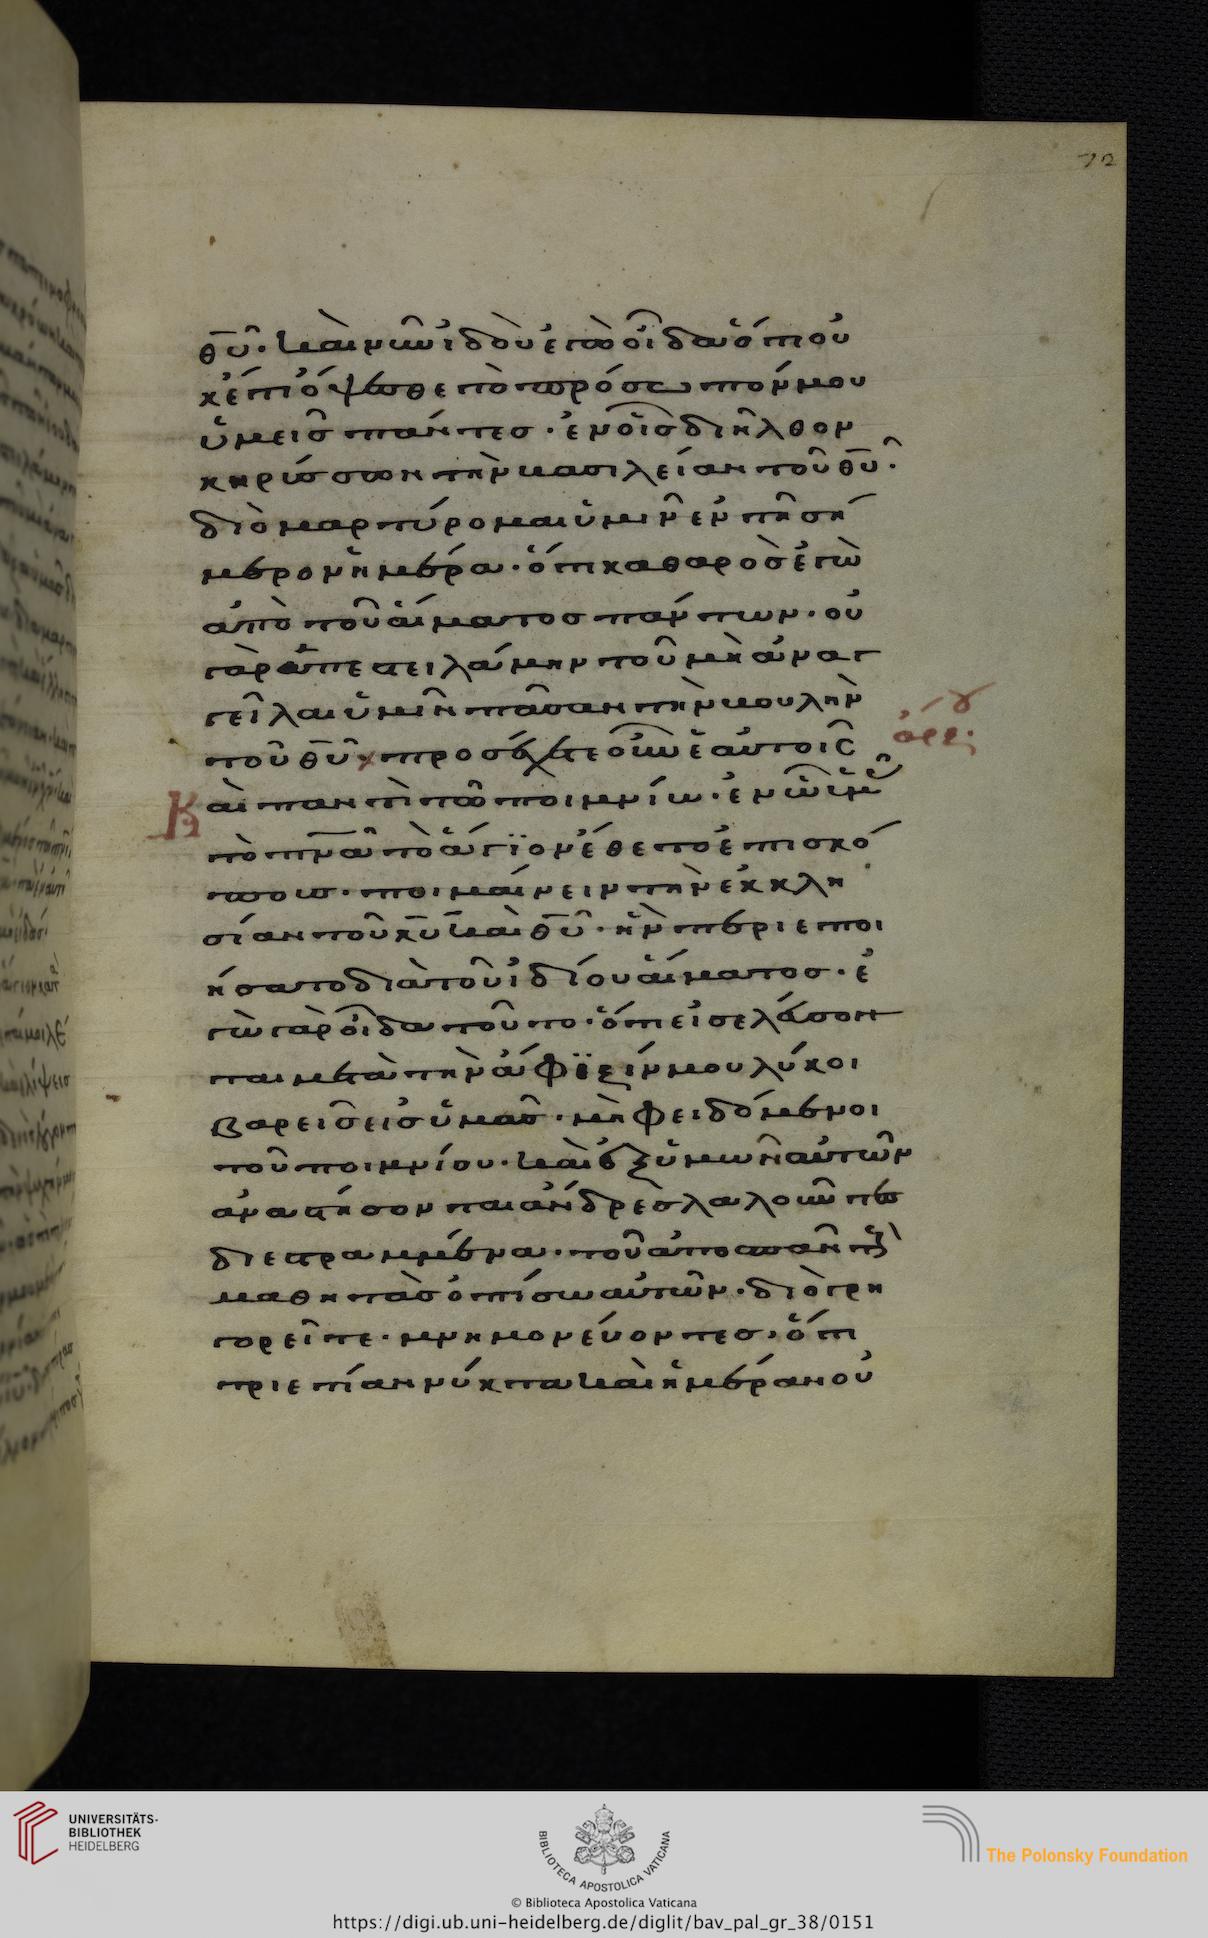 72
θ̅υ̅· καὶ νῦν ἰδοὺ ἐγὼ οἶδα ὅτι οὐ
κέτι ὄψεσθε τὸ πρόσωπόν μου
ὑμεῖς πάντες· ἐν οἷς διῆλθον
κηρύσσων τὴν βασιλείαν τοῦ θ̅υ̅·
διὸ μαρτύρομαι ὑμῖν ἐν τῇ σή
μερον ἡμέρα· ὅτι καθαρὸς ἐγὼ
ἀπὸ τοῦ αἵματος πάντων· οὐ
γὰρ ὑπεστειλάμην τοῦ μὴ ἀναγ
γεῖλαι ὑμῖν πᾶσαν τὴν βουλὴν
τοῦ θ̅υ̅· προσέχετε οὖν ἑαυτοῖς
Καὶ παντὶ τῶ ποιμνίω· ἐν ὧ ὑμᾶς
τὸ π̅ν̅α̅ τὸ ἅγϊον ἔθετο ἐπισκό
πους· ποιμαίνειν τὴν ἐκκλη
σίαν τοῦ κ̅υ̅ καὶ θ̅υ̅· ἣν περιεποι
ήσατο διὰ τοῦ ἰδίου αἵματος· ἐ
γὼ γὰρ οἶδα τοῦτο· ὅτι εἰσελεύσον
ται μετὰ τὴν ἄφϊξίν μου λύκοι
βαρεῖς εἰς ὑμᾶς· μὴ φειδόμενοι
τοῦ ποιμνίου· καὶ ἐξ ὑμῶν αὐτῶν
ἀναστήσονται ἄνδρες λαλοῦντες
διεστραμμένα· τοῦ ἀποσπᾶν τοὺς
μαθητὰς ὀπίσω αὐτῶν· διὸ γρη
γορεῖτε· μνημονεύοντες· ὅτι
τριετίαν νύκτα καὶ ἡμέραν οὐ
UNIVERSITÄTS-
BIBLIOTHEK
HEIDELBERG
BIBLIOTECA APOSTOLICA VATICANA
© Biblioteca Apostolica Vaticana
The Polonsky Foundation
https://digi.ub.uni-heidelberg.de/diglit/bav_pal_gr_38/0151